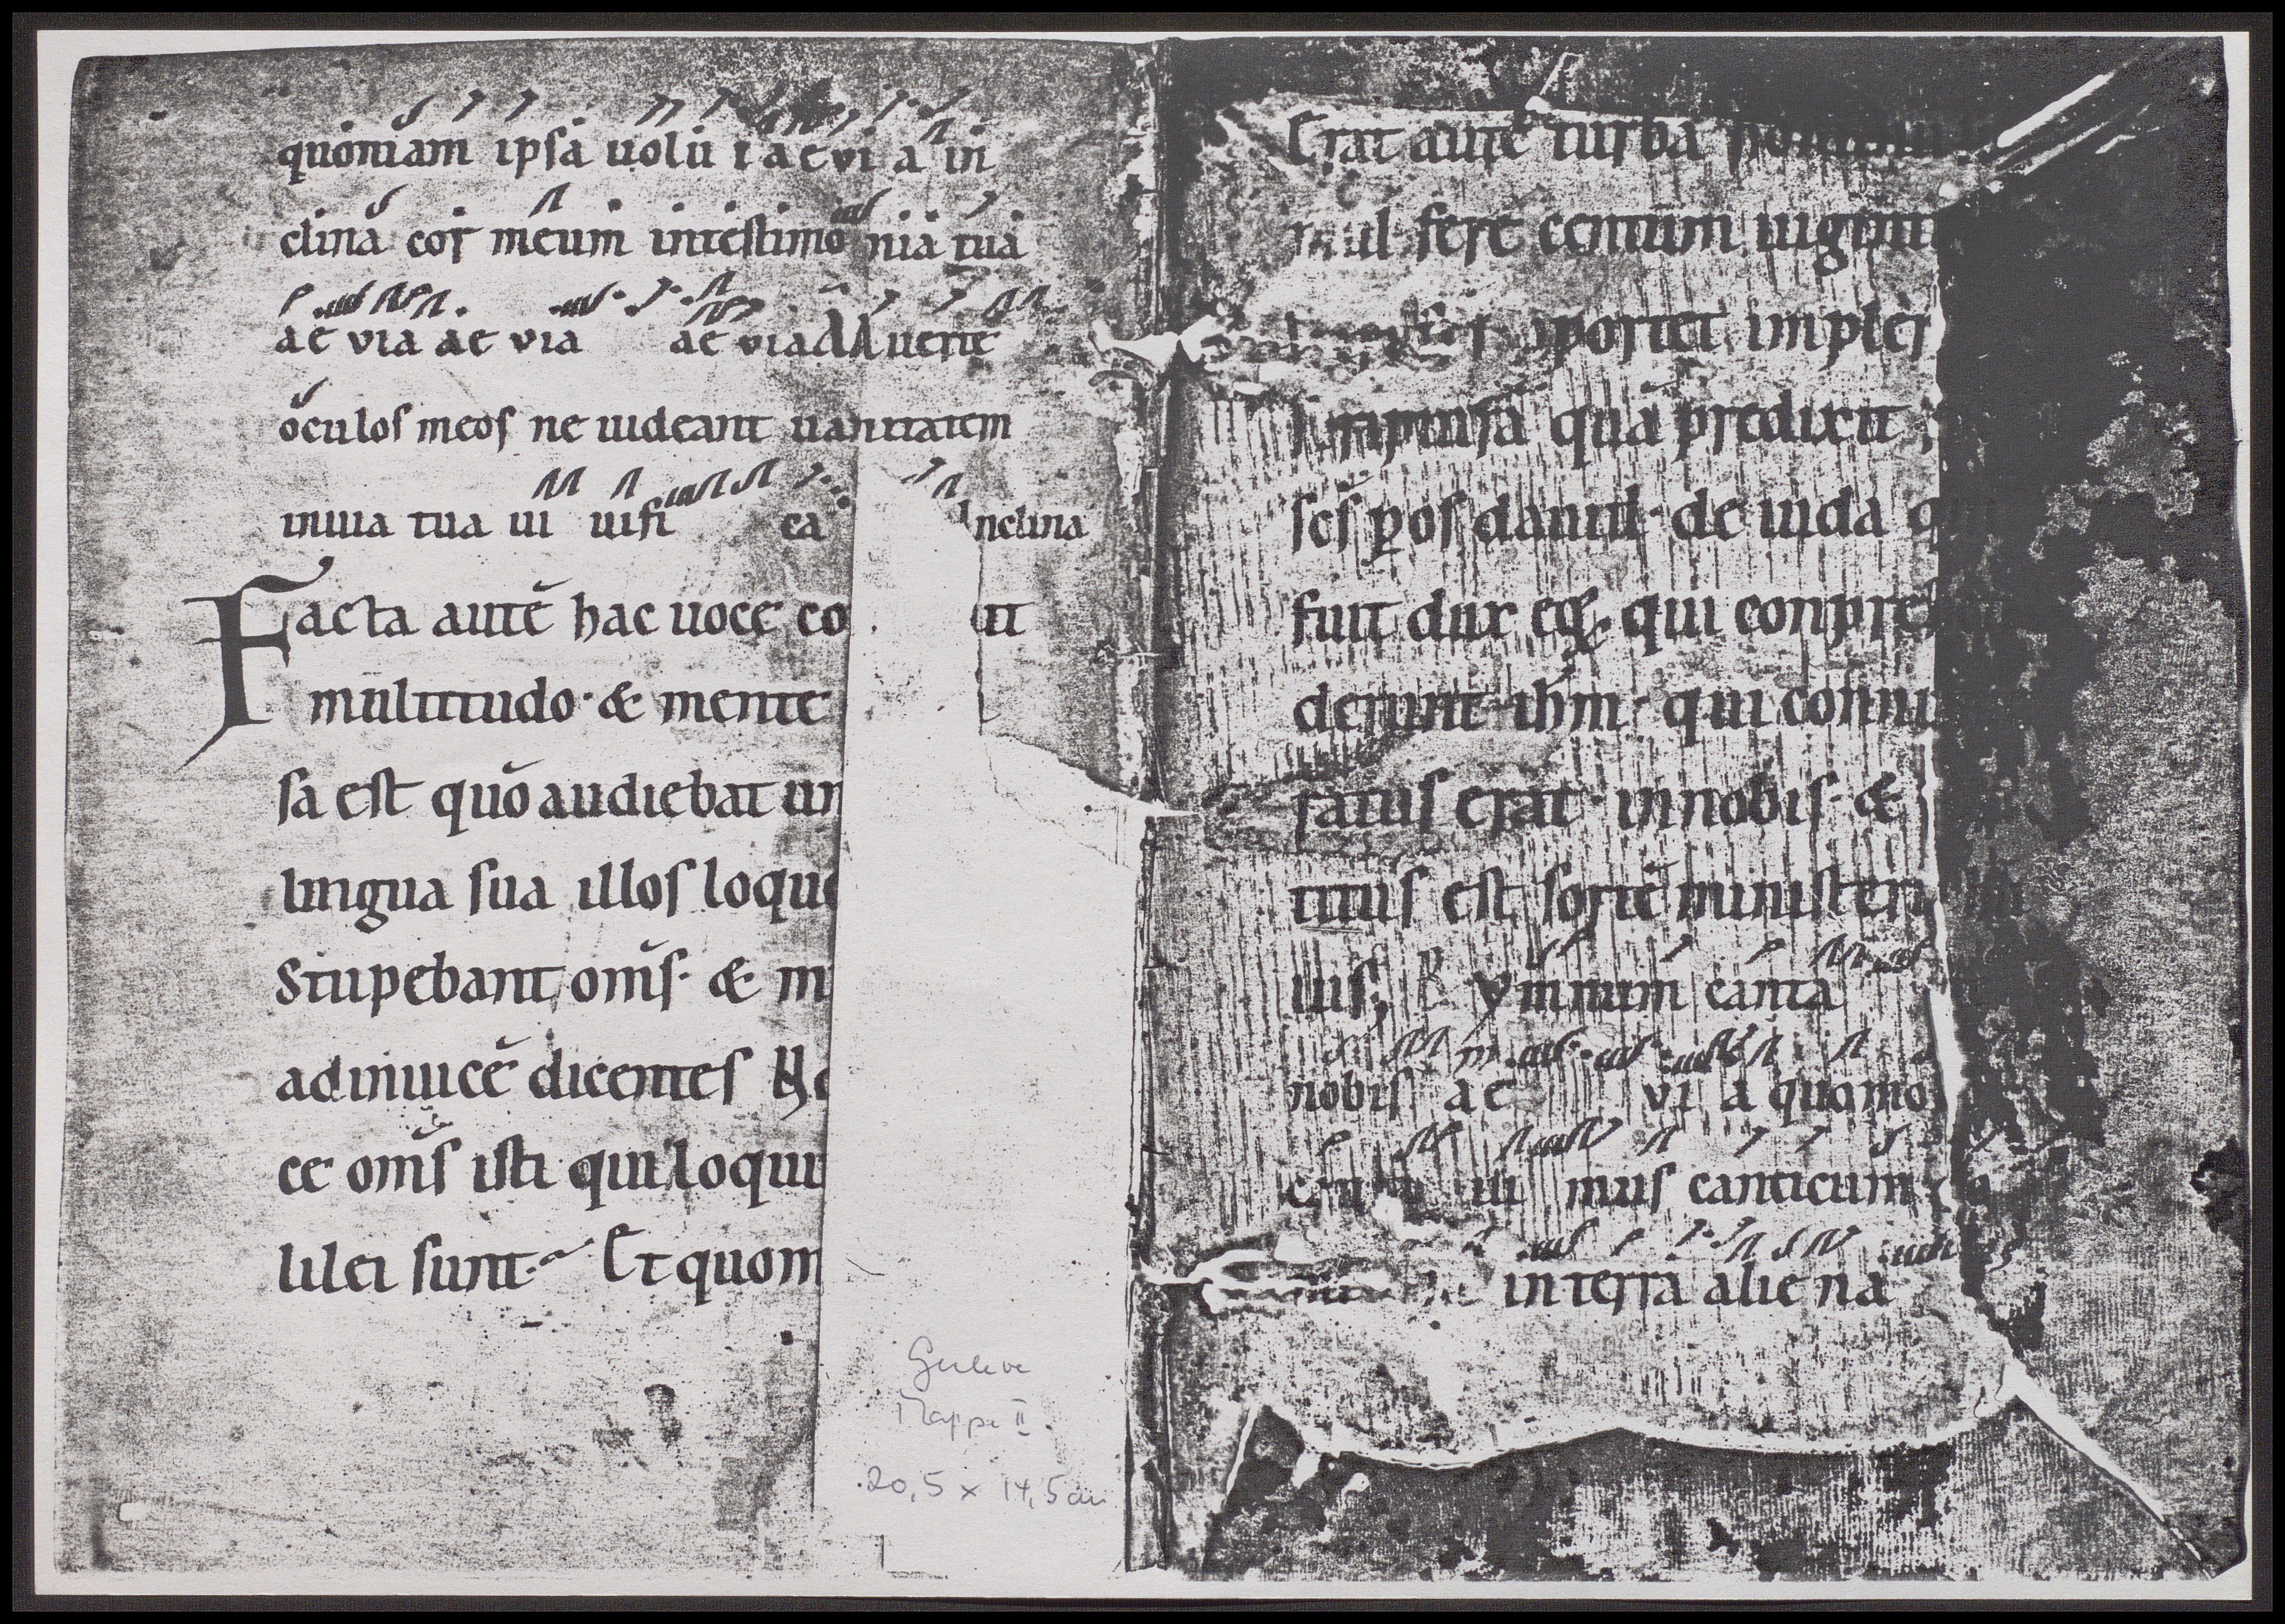 quoniam ipsa uolui ae vi a in
clina cor meum intestimo nia tua
ae via ae via ae via Auerte
oculos meos ne uideant uanitatem
inuia tua ui uifi ca nclina
Facta autē hac uoce co it
multitudo· & mente
sa est quō audiebat un
lingua sua illos loque
Stupebant om̄s· & m
adinuicē dicentes N
ce om̄s isti qui loqu
lilei sunt· Et quom
Erat autē turba
mul ferē centum uigin
oportet impler
qua predixit
sc̄s sp̄s dauid· de iuda
fuit dux eoꝝ· qui conpre
derunt ihm· qui connu
ratus erat· in nobis· &
titus est sortē minister
ius; R ymnum canta
nobis ae vi a quomo
ui mus canticum
in terra aliena
Genève
Mappe II
20,5 x 14,5 cm